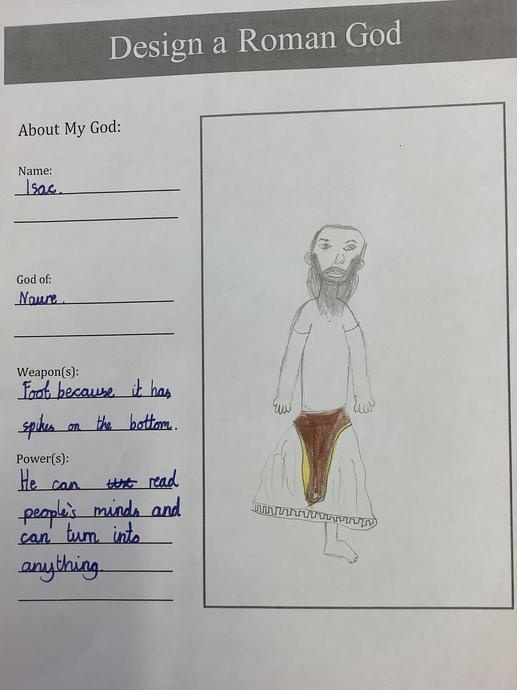 Design a Roman God
About My God:
Name:
Isac.
God of:
Naure.
Weapon(s):
Foot because it has
spikes on the bottom.
Power(s):
He can read
people's minds and
can turn into
anything.